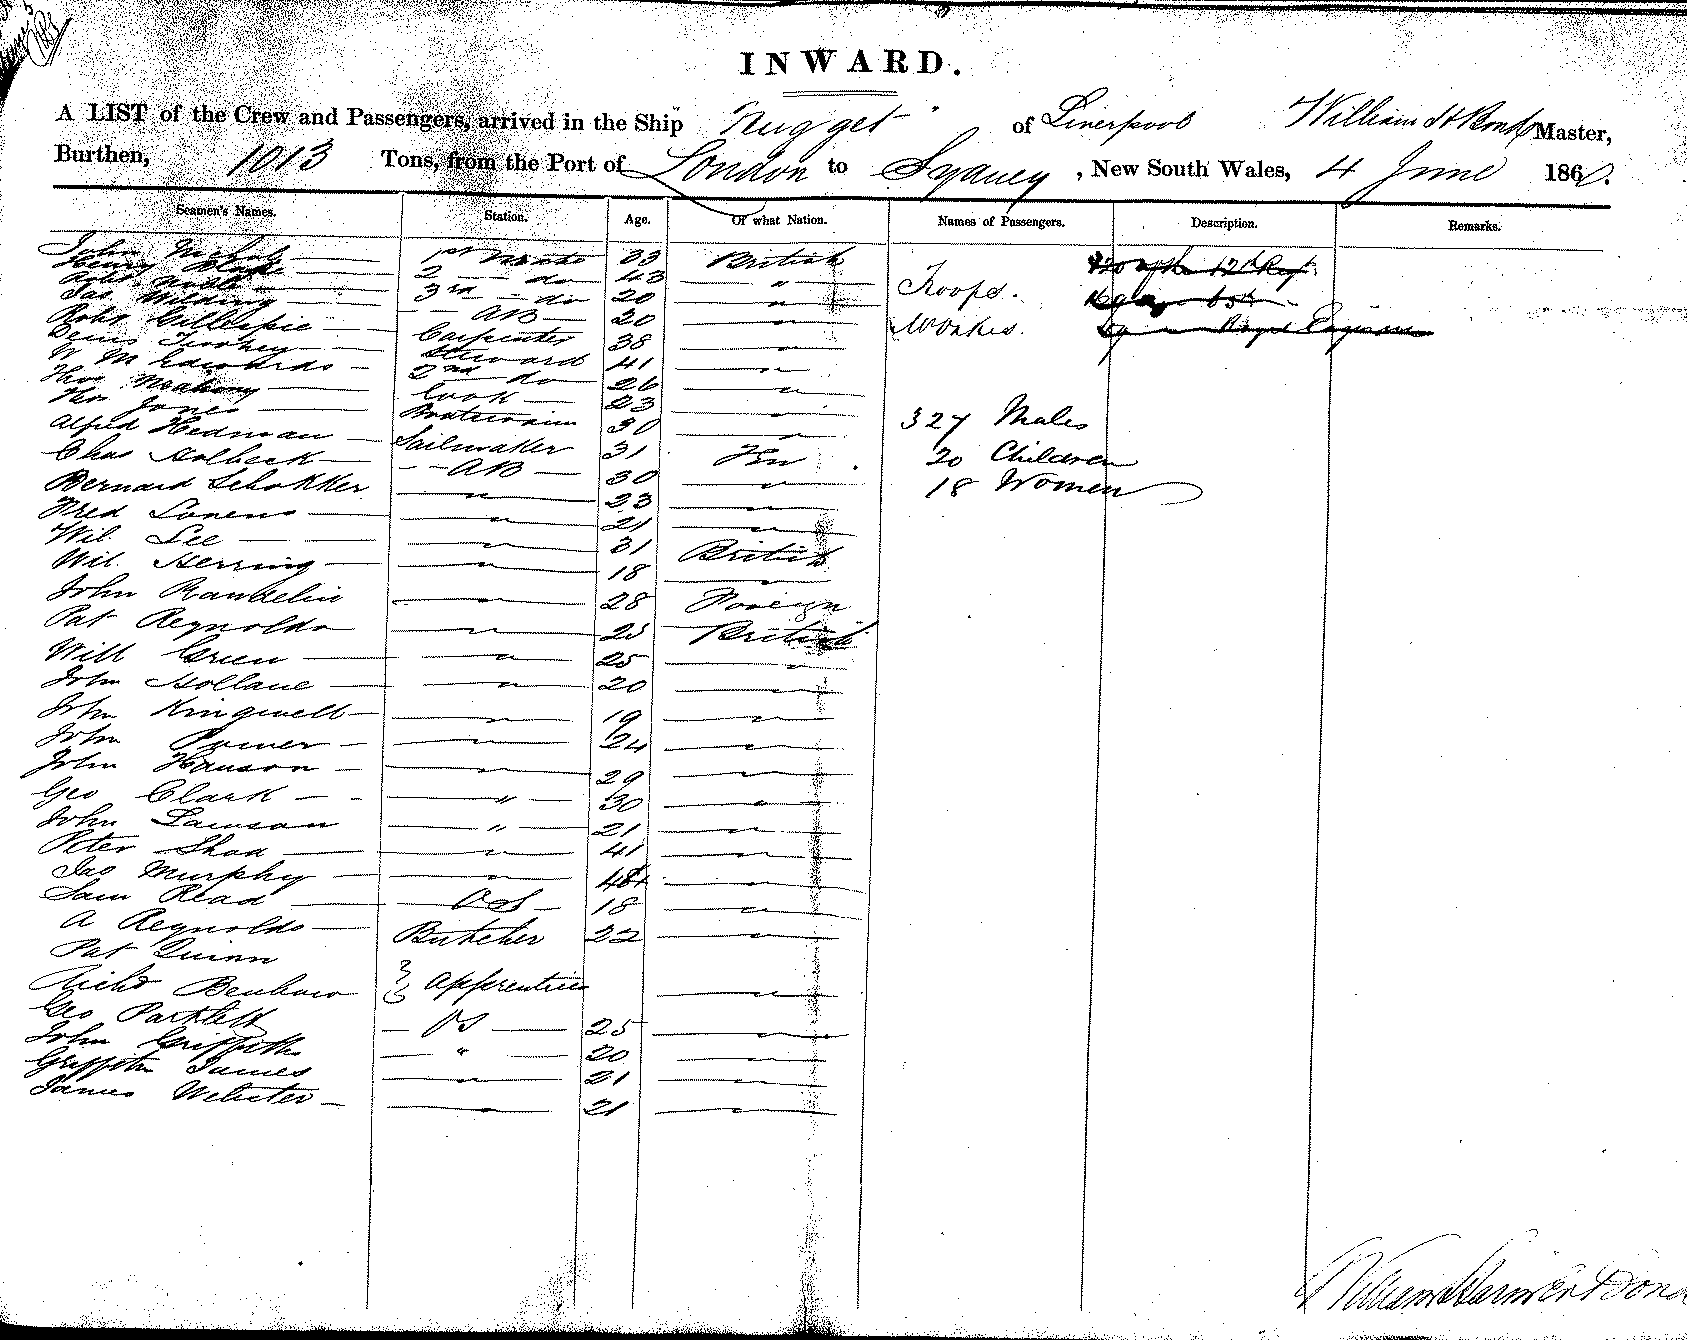 INWARD.
A LIST of the Crew and Passengers, arrived in the Ship "Nugget" of Liverpool William H Bond Master,
Burthen, 1013 Tons, from the Port of London to Sydney, New South Wales, 4 June 1860.
Seamen's Names. Station. Age. Of what Nation. Names of Passengers. Description. Remarks.
John Nichols 1st Mate 33 British
Henry 2 do 43 "
3rd do 20 "
Jas Wilding AB 20 "
Robt Gillespie Carpenter 38 "
Steward 41 "
W M Edwards 2nd do 26 "
Thos Mahony Cook 23 "
Thos Jones Boatswain 30 "
Alfred Hedman Sailmaker 31 Fn
Chas Holbeck AB 30 "
Bernard Schokker " 23 "
Fred " 21 "
Wil. Lee " 31 British
Wil. Herring " 18 "
John " 28 Foreign
Pat Reynolds " 25 British
Will Green " 25 "
John Holland " 20 "
John Kingwell " 19 "
John " 24 "
John Hanson " 29 "
Geo Clark " 30 "
John Lawson " 21 "
Peter Shea " 41 "
Jas Murphy " "
Sam Read OS 18 "
A Reynolds Butcher 22 "
Pat Quinn
Richd Benbow } Apprentices "
Geo OS 25 "
John Griffiths " 20 "
Griffith James " 21 "
James Webster " 21 "
Troops. 12th Regt
65th
Royal Engineers
327 Males
20 Children
18 Women
William Bond